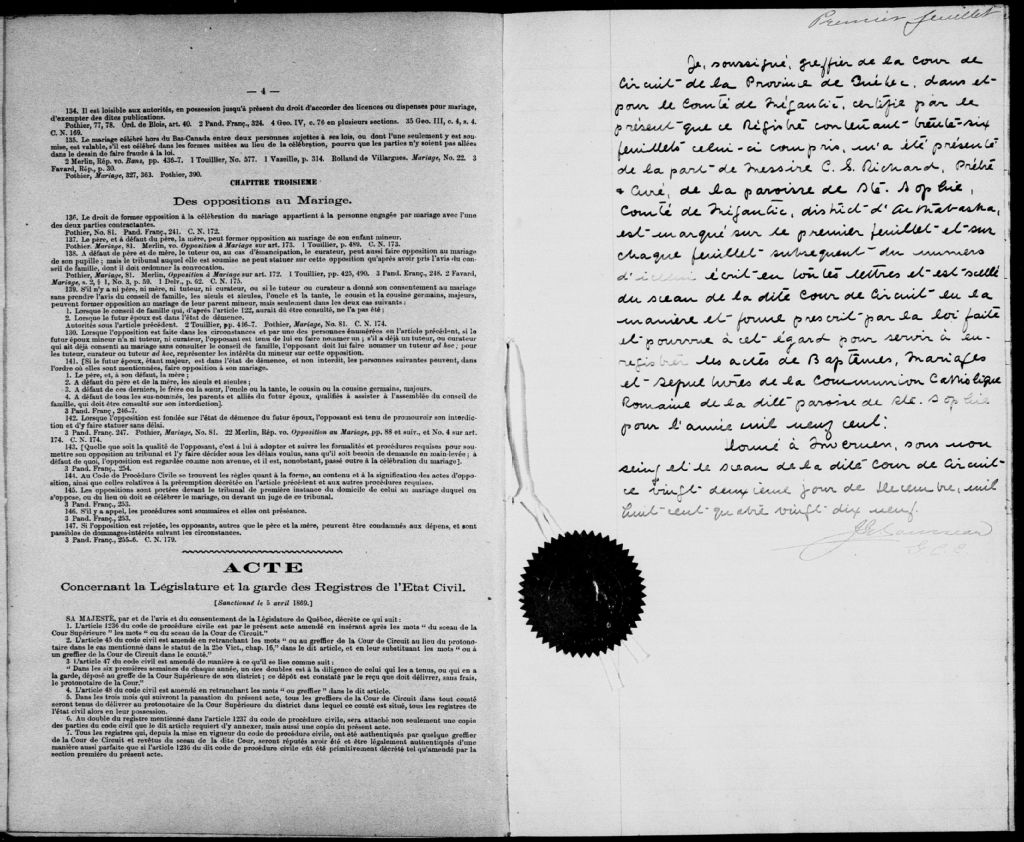 — 4 —
134. Il est loisible aux autorités, en possession jusqu'à présent du droit d'accorder des licences ou dispenses pour mariage,
d'exempter des dites publications.
Pothier, 77, 78. Ord. de Blois, art. 40. 2 Pand. Franç., 324. 4 Geo. IV, c. 76 en plusieurs sections. 35 Geo. III, c. 4, s. 4.
C. N. 169.
135. Le mariage célébré hors du Bas-Canada entre deux personnes sujettes à ses lois, ou dont l'une seulement y est sou-
mise, est valable, s'il est célébré dans les formes usitées au lieu de la célébration, pourvu que les parties n'y soient pas allées
dans le dessin de faire fraude à la loi.
2 Merlin, Rép. vo. Bans, pp. 436-7. 1 Touillier, No. 577. 1 Vazille, p. 314. Rolland de Villargues, Mariage, No. 22. 3
Favard, Rép., p. 30.
Pothier, Mariage, 327, 363. Pothier, 390.
CHAPITRE TROISIEME
Des oppositions au Mariage.
136. Le droit de former opposition à la célébration du mariage appartient à la personne engagée par mariage avec l'une
des deux parties contractantes.
Pothier, No. 81. Pand. Franç., 241. C. N. 172.
137. Le père, et à défaut du père, la mère, peut former opposition au mariage de son enfant mineur.
Pothier. Mariage, 81. Merlin, vo. Opposition à Mariage sur art. 173. 1 Touillier, p. 489. C. N. 173.
138. A défaut de père et de mère, le tuteur ou, au cas d'émancipation, le curateur, peut aussi faire opposition au mariage
de son pupille ; mais le tribunal auquel elle est soumise ne peut statuer sur cette opposition qu'après avoir pris l'avis du con-
seil de famille, dont il doit ordonner la convocation.
Pothier, Mariage, 81. Merlin, Opposition à Mariage sur art. 172. 1 Touillier, pp. 425, 490. 3 Pand. Franç., 248. 2 Favard,
Mariage, s. 2, § 1, No. 3, p. 59. 1 Delv., p. 62. C. N. 175.
139. S'il n'y a ni père, ni mère, ni tuteur, ni curateur, ou si le tuteur ou curateur a donné son consentement au mariage
sans prendre l'avis du conseil de famille, les aïeuls et aïeules, l'oncle et la tante, le cousin et la cousine germains, majeurs,
peuvent former opposition au mariage de leur parent mineur, mais seulement dans les deux cas suivants :
1. Lorsque le conseil de famille qui, d'après l'article 122, aurait dû être consulté, ne l'a pas été ;
2. Lorsque le futur époux est dans l'état de démence.
Autorités sous l'article précédent. 2 Touillier, pp. 416-7. Pothier, Mariage, No. 81. C. N. 174.
130. Lorsque l'opposition est faite dans les circonstances et par une des personnes énumérées en l'article précédent, si le
futur époux mineur n'a ni tuteur, ni curateur, l'opposant est tenu de lui en faire nommer un ; s'il a déjà un tuteur, ou curateur
qui ait déjà consenti au mariage sans consulter le conseil de famille, l'opposant doit lui faire nommer un tuteur ad hoc ; pour
les tuteur, curateur ou tuteur ad hoc, représenter les intérêts du mineur sur cette opposition.
141. [Si le futur époux, étant majeur, est dans l'état de démence, et non interdit, les personnes suivantes peuvent, dans
l'ordre où elles sont mentionnées, faire opposition à son mariage.
1. Le père, et, à son défaut, la mère ;
2. A défaut du père et de la mère, les aïeuls et aïeules ;
3. A défaut de ces derniers, le frère ou la sœur, l'oncle ou la tante, le cousin ou la cousine germains, majeurs.
4. A défaut de tous les sus-nommés, les parents et alliés du futur époux, qualifiés à assister à l'assemblée du conseil de
famille, qui doit être consulté sur son interdiction].
3 Pand. Franç., 246-7.
142. Lorsque l'opposition est fondée sur l'état de démence du futur époux, l'opposant est tenu de promouvoir son interdic-
tion et d'y faire statuer sans délai.
3 Pand. Franç. 247. Pothier, Mariage, No. 81. 22 Merlin, Rép. vo. Opposition au Mariage, pp. 88 et suiv., et No. 4 sur art.
174. C. N. 174.
143. [Quelle que soit la qualité de l'opposant, c'est à lui à adopter et suivre les formalités et procédures requises pour sou-
mettre son opposition au tribunal et l'y faire décider sous les délais voulus, sans qu'il soit besoin de demande en main-levée ; à
défaut de quoi, l'opposition est regardée comme non avenue, et il est, nonobstant, passé outre à la célébration du mariage].
3 Pand. Franç., 254.
144. Au Code de Procédure Civile se trouvent les règles quant à la forme, au contenu et à la signification des actes d'oppo-
sition, ainsi que celles relatives à la préremption décrétée en l'article précédent et aux autres procédures requises.
145. Les oppositions sont portées devant le tribunal de première instance du domicile de celui au mariage duquel on
s'oppose, ou du lieu où doit se célébrer le mariage, ou devant un juge de ce tribunal.
3 Pand. Franç., 253.
146. S'il y a appel, les procédures sont sommaires et elles ont préséance.
3 Pand. Franç., 253.
147. Si l'opposition est rejetée, les opposants, autres que le père et la mère, peuvent être condamnés aux dépens, et sont
passibles de dommages-intérêts suivant les circonstances.
3 Pand. Franç., 255-6. C. N. 179.
ACTE
Concernant la Législature et la garde des Registres de l'Etat Civil.
[Sanctionné le 5 avril 1869.]
SA MAJESTE, par et de l'avis et du consentement de la Législature de Québec, décrète ce qui suit :
1. L'article 1236 du code de procédure civile est par le présent acte amendé en insérant après les mots " du sceau de la
Cour Supérieure " les mots " ou du sceau de la Cour de Circuit."
2. L'article 45 du code civil est amendé en retranchant les mots " ou au greffier de la Cour de Circuit au lieu du protono-
taire dans le cas mentionné dans le statut de la 25e Vict., chap. 16," dans le dit article, et en leur substituant les mots " ou à
un greffier de la Cour de Circuit dans le comté."
3 L'article 47 du code civil est amendé à manière à ce qu'il se lise comme suit :
" Dans les six premières semaines de chaque année, un des doubles est à la diligence de celui qui les a tenus, ou qui en a
la garde, déposé au greffe de la Cour Supérieure de son district ; ce dépôt est constaté par le reçu que doit délivrer, sans frais,
le protonotaire de la Cour."
4. L'article 48 du code civil est amendé en retranchant les mots " ou greffier " dans le dit article.
5. Dans les trois mois qui suivront la passation du présent acte, tous les greffiers de la Cour de Circuit dans tout comté
seront tenus de délivrer au protonotaire de la Cour Supérieure du district dans lequel ce comté est situé, tous les registres de
l'état civil alors en leur possession.
6. Au double du registre mentionné dans l'article 1237 du code de procédure civile, sera attaché non seulement une copie
des parties du code civil que le dit article requiert d'y annexer, mais aussi une copie du présent acte.
7. Tous les registres qui, depuis la mise en vigueur du code de procédure civile, ont été authentiqués par quelque greffier
de la Cour de Circuit et revêtus du sceau de la dite Cour, seront réputés avoir été et être légalement authentiqués d'une
manière aussi parfaite que si l'article 1236 du dit code de procédure civile eût été primitivement décrété tel qu'amendé par la
section première du présent acte.
Premier feuillet
Je, soussigné, greffier de la Cour de
Circuit de la Province de Québec, dans et
pour le Comté de Mégantic, certifie par le
présent que ce Régistre contenant trente-six
feuillets celui-ci compris, m'a été présenté
de la part de Messire C. S. Richard, Prêtre
& Curé, de la paroisse de Ste. Sophie,
Comté de Mégantic, district d'Arthabaska,
est marqué sur le premier feuillet et sur
chaque feuillet subséquent du numéro
d'icelui écrit en toutes lettres et est scellé
du sceau de la dite Cour de Circuit en la
manière et forme prescrit par la loi faite
et pourvue à cet égard pour servir à en-
registrer les actes de Baptêmes, Mariages
et Sépultures de la Communion Catholique
Romaine de la dite paroisse de Ste. Sophie
pour l'année mil neuf cent.
Donné à Inverness, sous mon
seing et le sceau de la dite Cour de Circuit
ce vingt deuxième jour de Décembre, mil
huit cent quatre vingt dix neuf.
G. C. C.